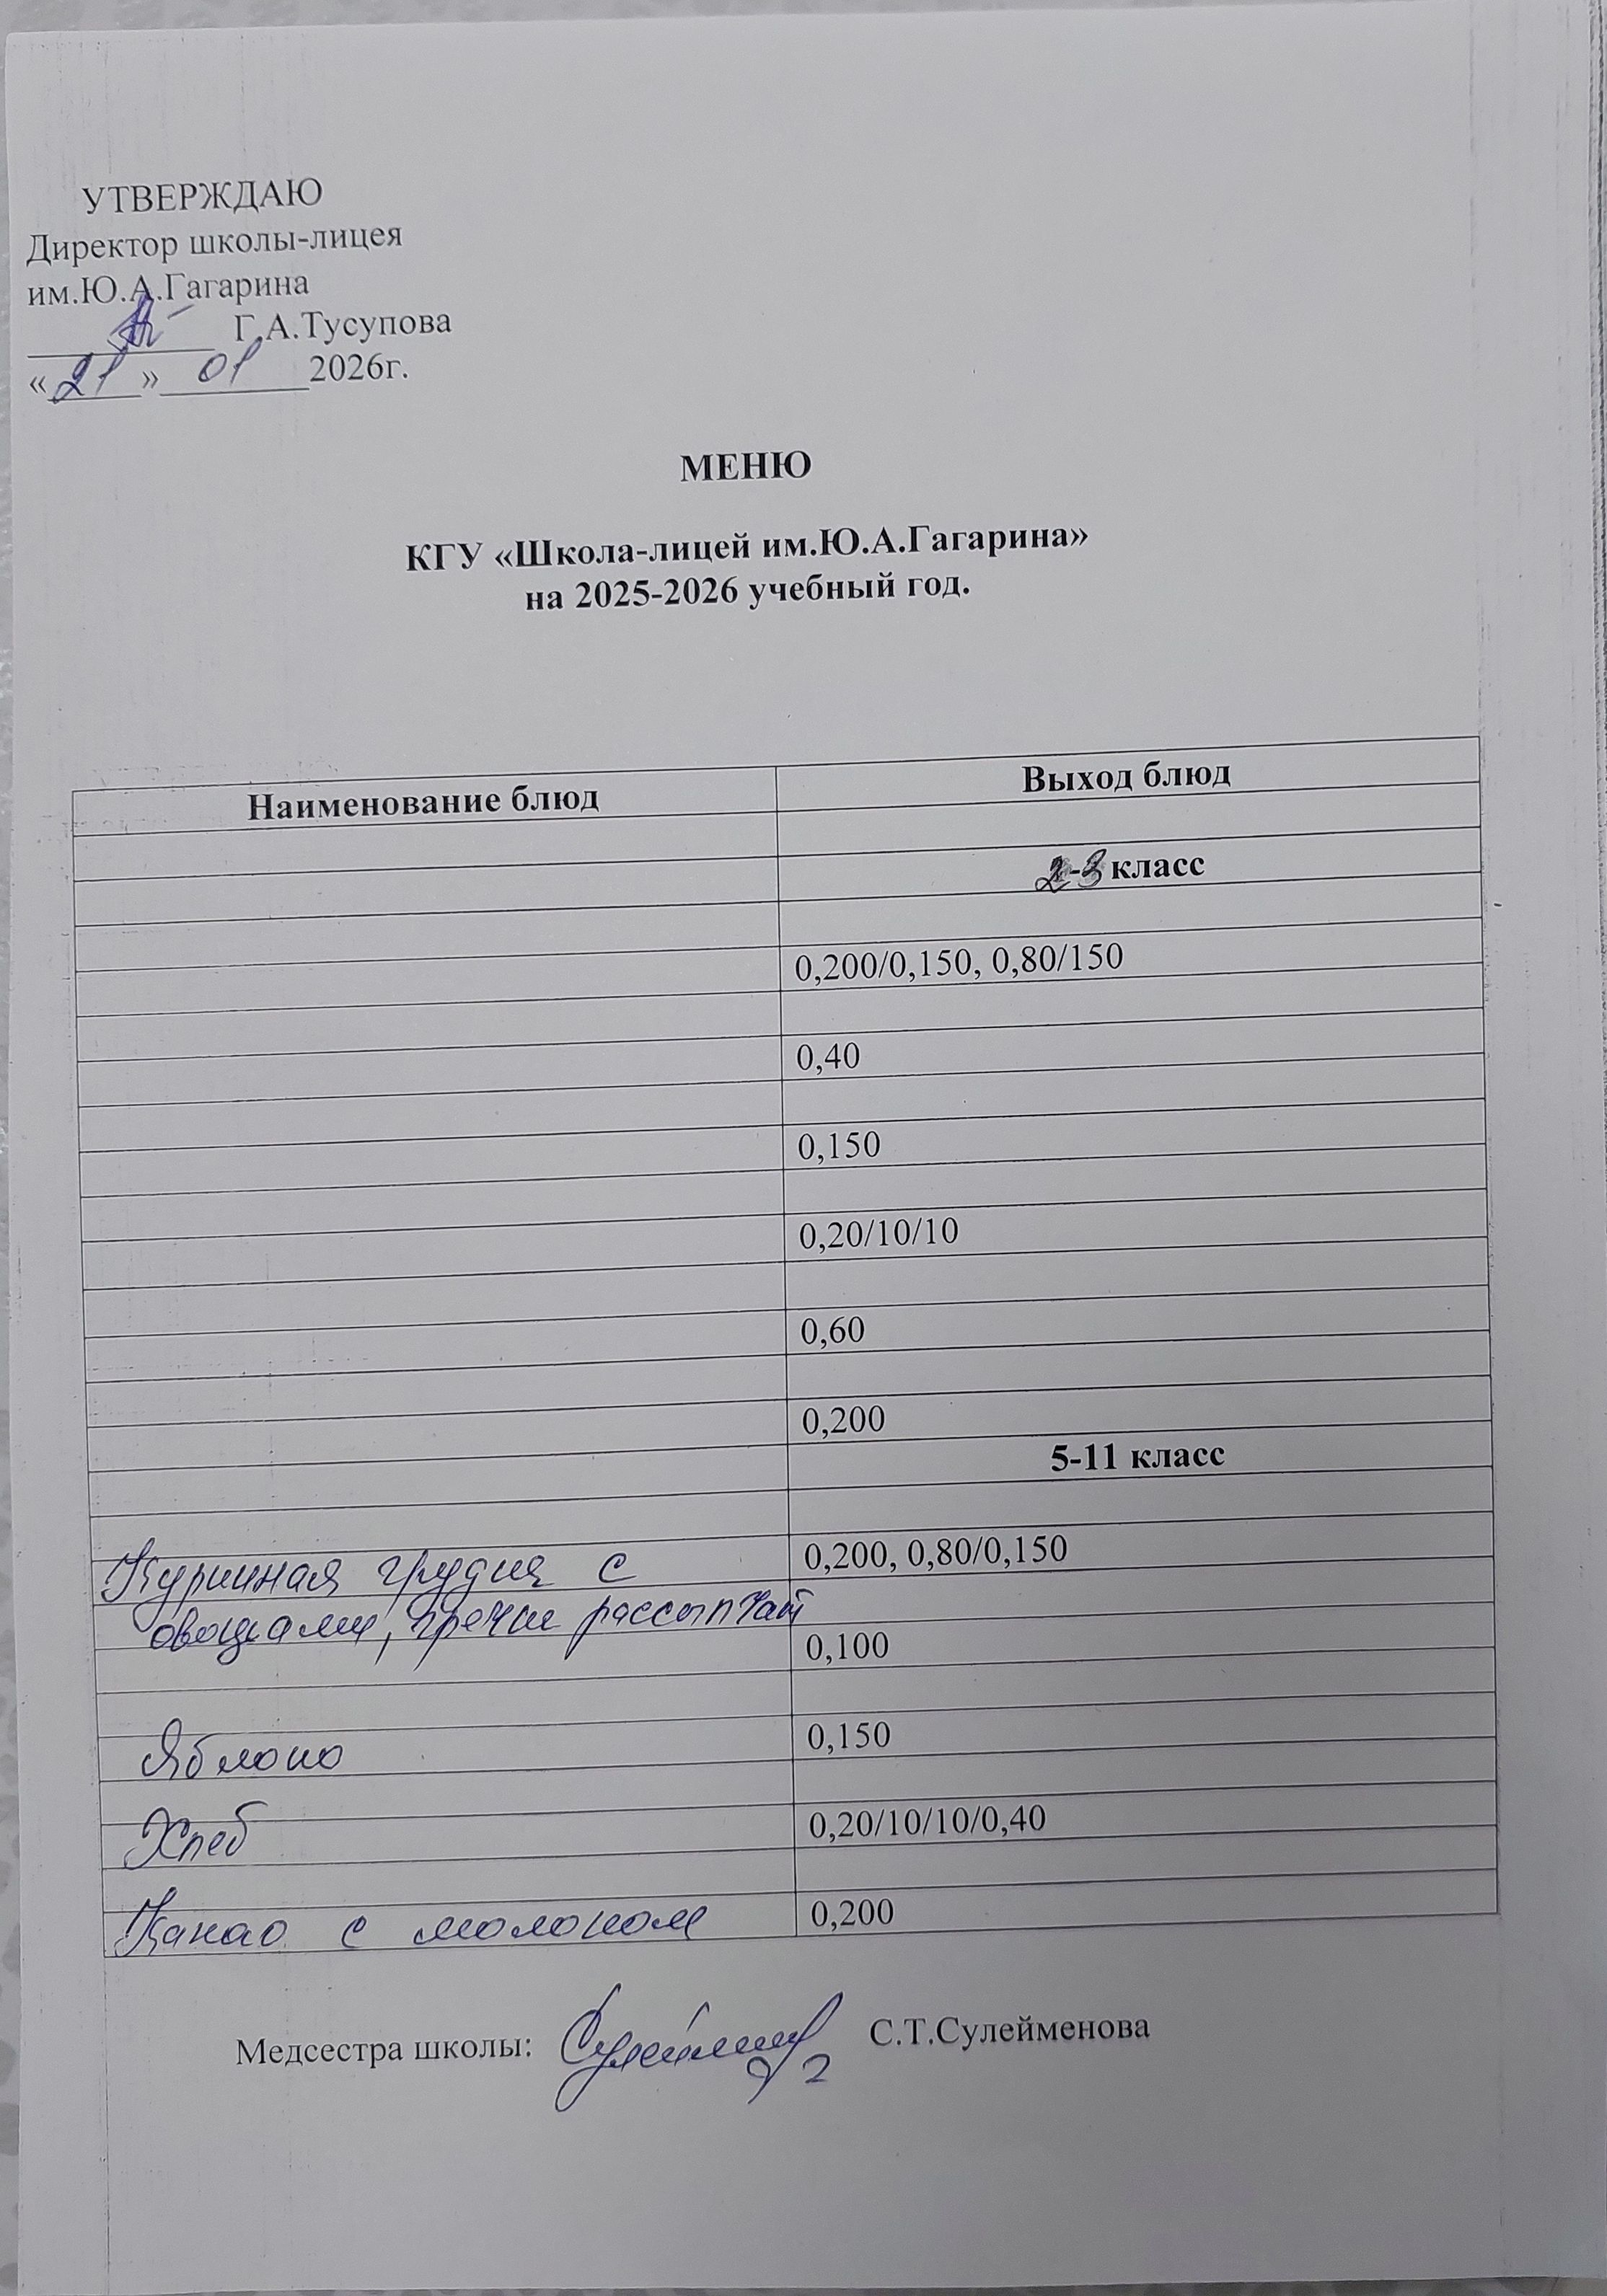 УТВЕРЖДАЮ
Директор школы-лицея
им.Ю.А.Гагарина
Г.А.Тусупова
«21» 01 2026г.
МЕНЮ
КГУ «Школа-лицей им.Ю.А.Гагарина»
на 2025-2026 учебный год.
Наименование блюд Выход блюд
2-3 класс
0,200/0,150, 0,80/150
0,40
0,150
0,20/10/10
0,60
0,200
5-11 класс
Куринная грудка с 0,200, 0,80/0,150
овощами, гречка рассыпчат
0,100
Яблоко 0,150
Хлеб 0,20/10/10/0,40
Какао с молоком 0,200
Медсестра школы: С.Т.Сулейменова